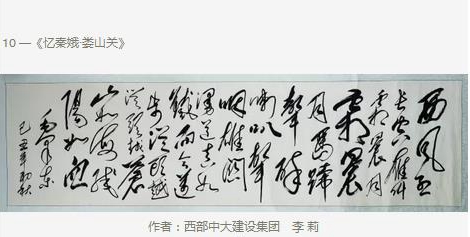 10 —《忆秦娥·娄山关》
西风烈
长空雁叫
霜晨月
霜晨
月馬蹄
聲碎
喇叭聲
咽雄関
漫道真如
鐵而今邁
步從頭越
從頭越蒼
山如海殘
陽如血
毛泽东
己丑年初秋
作者：西部中大建设集团 李 莉